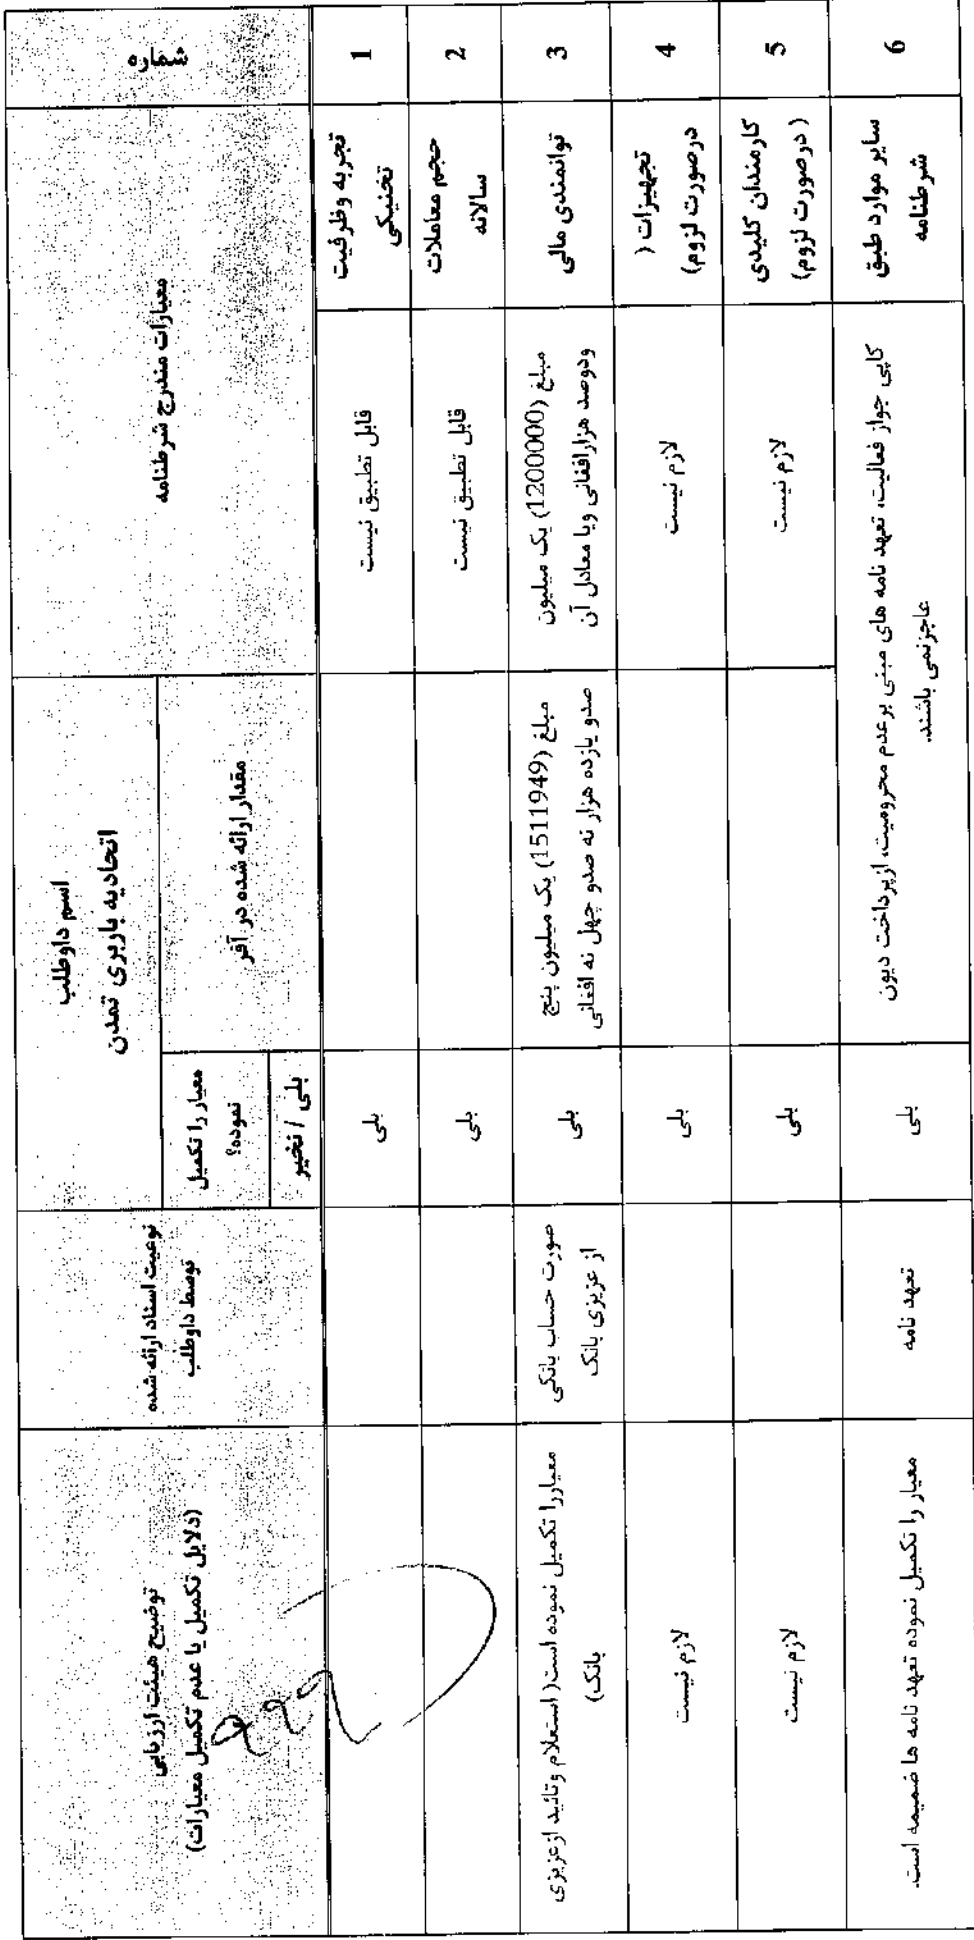 شماره
معیارات مندرج شرطنامه
اسم داوطلب
اتحادیه باربری تمدن
مقدار ارائه شده در آفر
معیار را تکمیل
نموده؟
بلی / نخیر
نوعیت اسناد ارائه شده
توسط داوطلب
توضیح هیئت ارزیابی
(دلایل تکمیل یا عدم تکمیل معیارات)
1
تجربه وظرفیت
تخنیکی
قابل تطبیق نیست
بلی
2
حجم معاملات
سالانه
قابل تطبیق نیست
بلی
3
توانمندی مالی
مبلغ (1200000) یک میلیون
ودوصد هزارافغانی ویا معادل آن
مبلغ (1511949) یک میلیون پنج
صدو یازده هزار نه صدو چهل نه افغانی
بلی
صورت حساب بانکی
از عزیزی بانک
معیاررا تکمیل نموده است( استعلام وتائید ازعزیزی
بانک)
4
تجهیزات (
درصورت لزوم)
لازم نیست
بلی
لازم نیست
5
کارمندان کلیدی
(درصورت لزوم)
لازم نیست
بلی
لازم نیست
6
سایر موارد طبق
شرطنامه
کاپی جواز فعالیت، تعهد نامه های مبنی برعدم محرومیت، ازپرداخت دیون
عاجزنمی باشند.
بلی
تعهد نامه
معیار را تکمیل نموده تعهد نامه ها ضمیمه است.